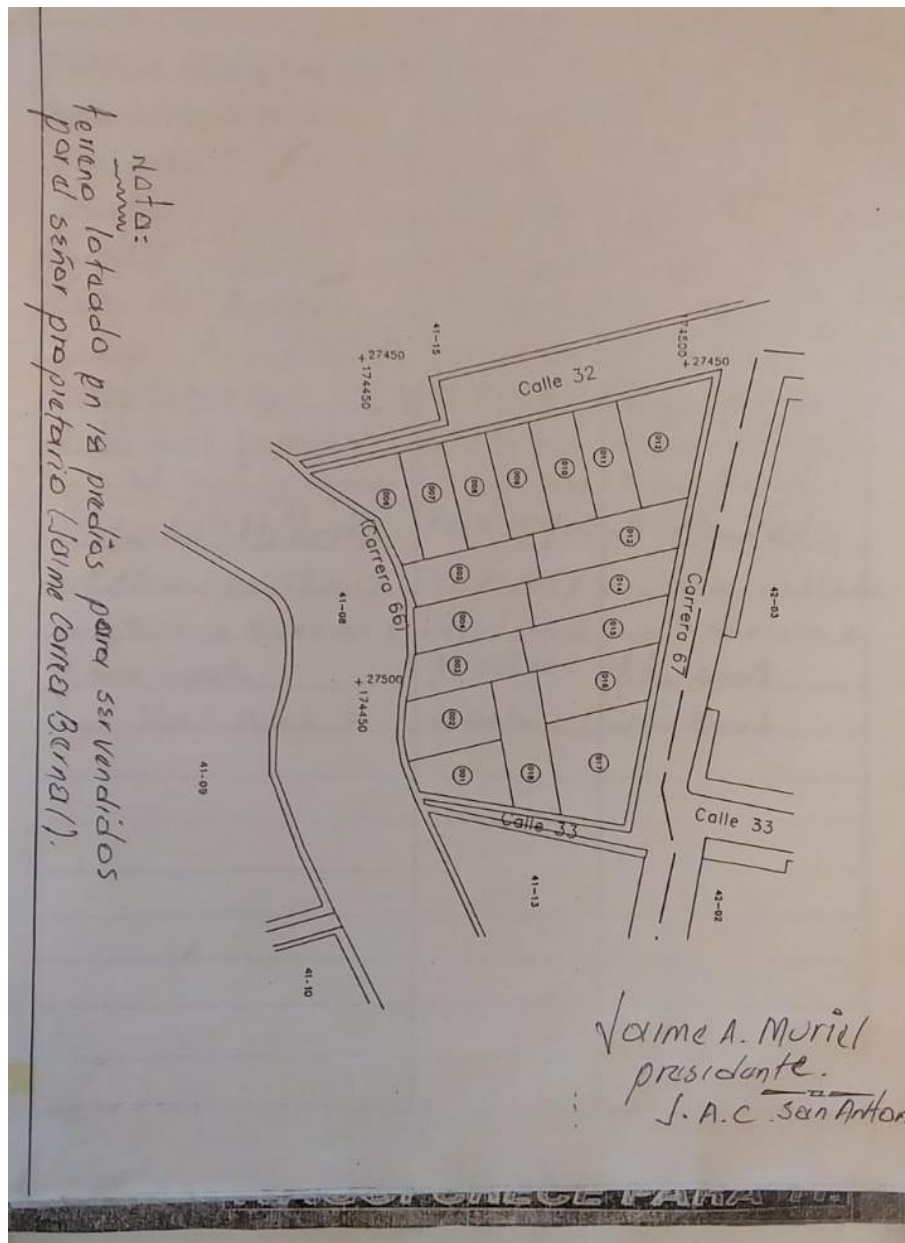 Nota:
terreno loteado en 18 predios para ser vendidos
por el señor propietario (Jaime Correa Bernal).
41-15
+ 27450
174450
174500
+ 27450
Calle 32
012
011
010
009
008
007
006
013
005
014
004
015
003
016
002
017
018
001
(Carrera 66)
Carrera 67
42-03
41-08
+ 27500
174450
41-09
Calle 33
Calle 33
41-13
42-02
41-10
Jaime A. Muriel
presidente.
J.A.C. San Anton
CRECE PARA